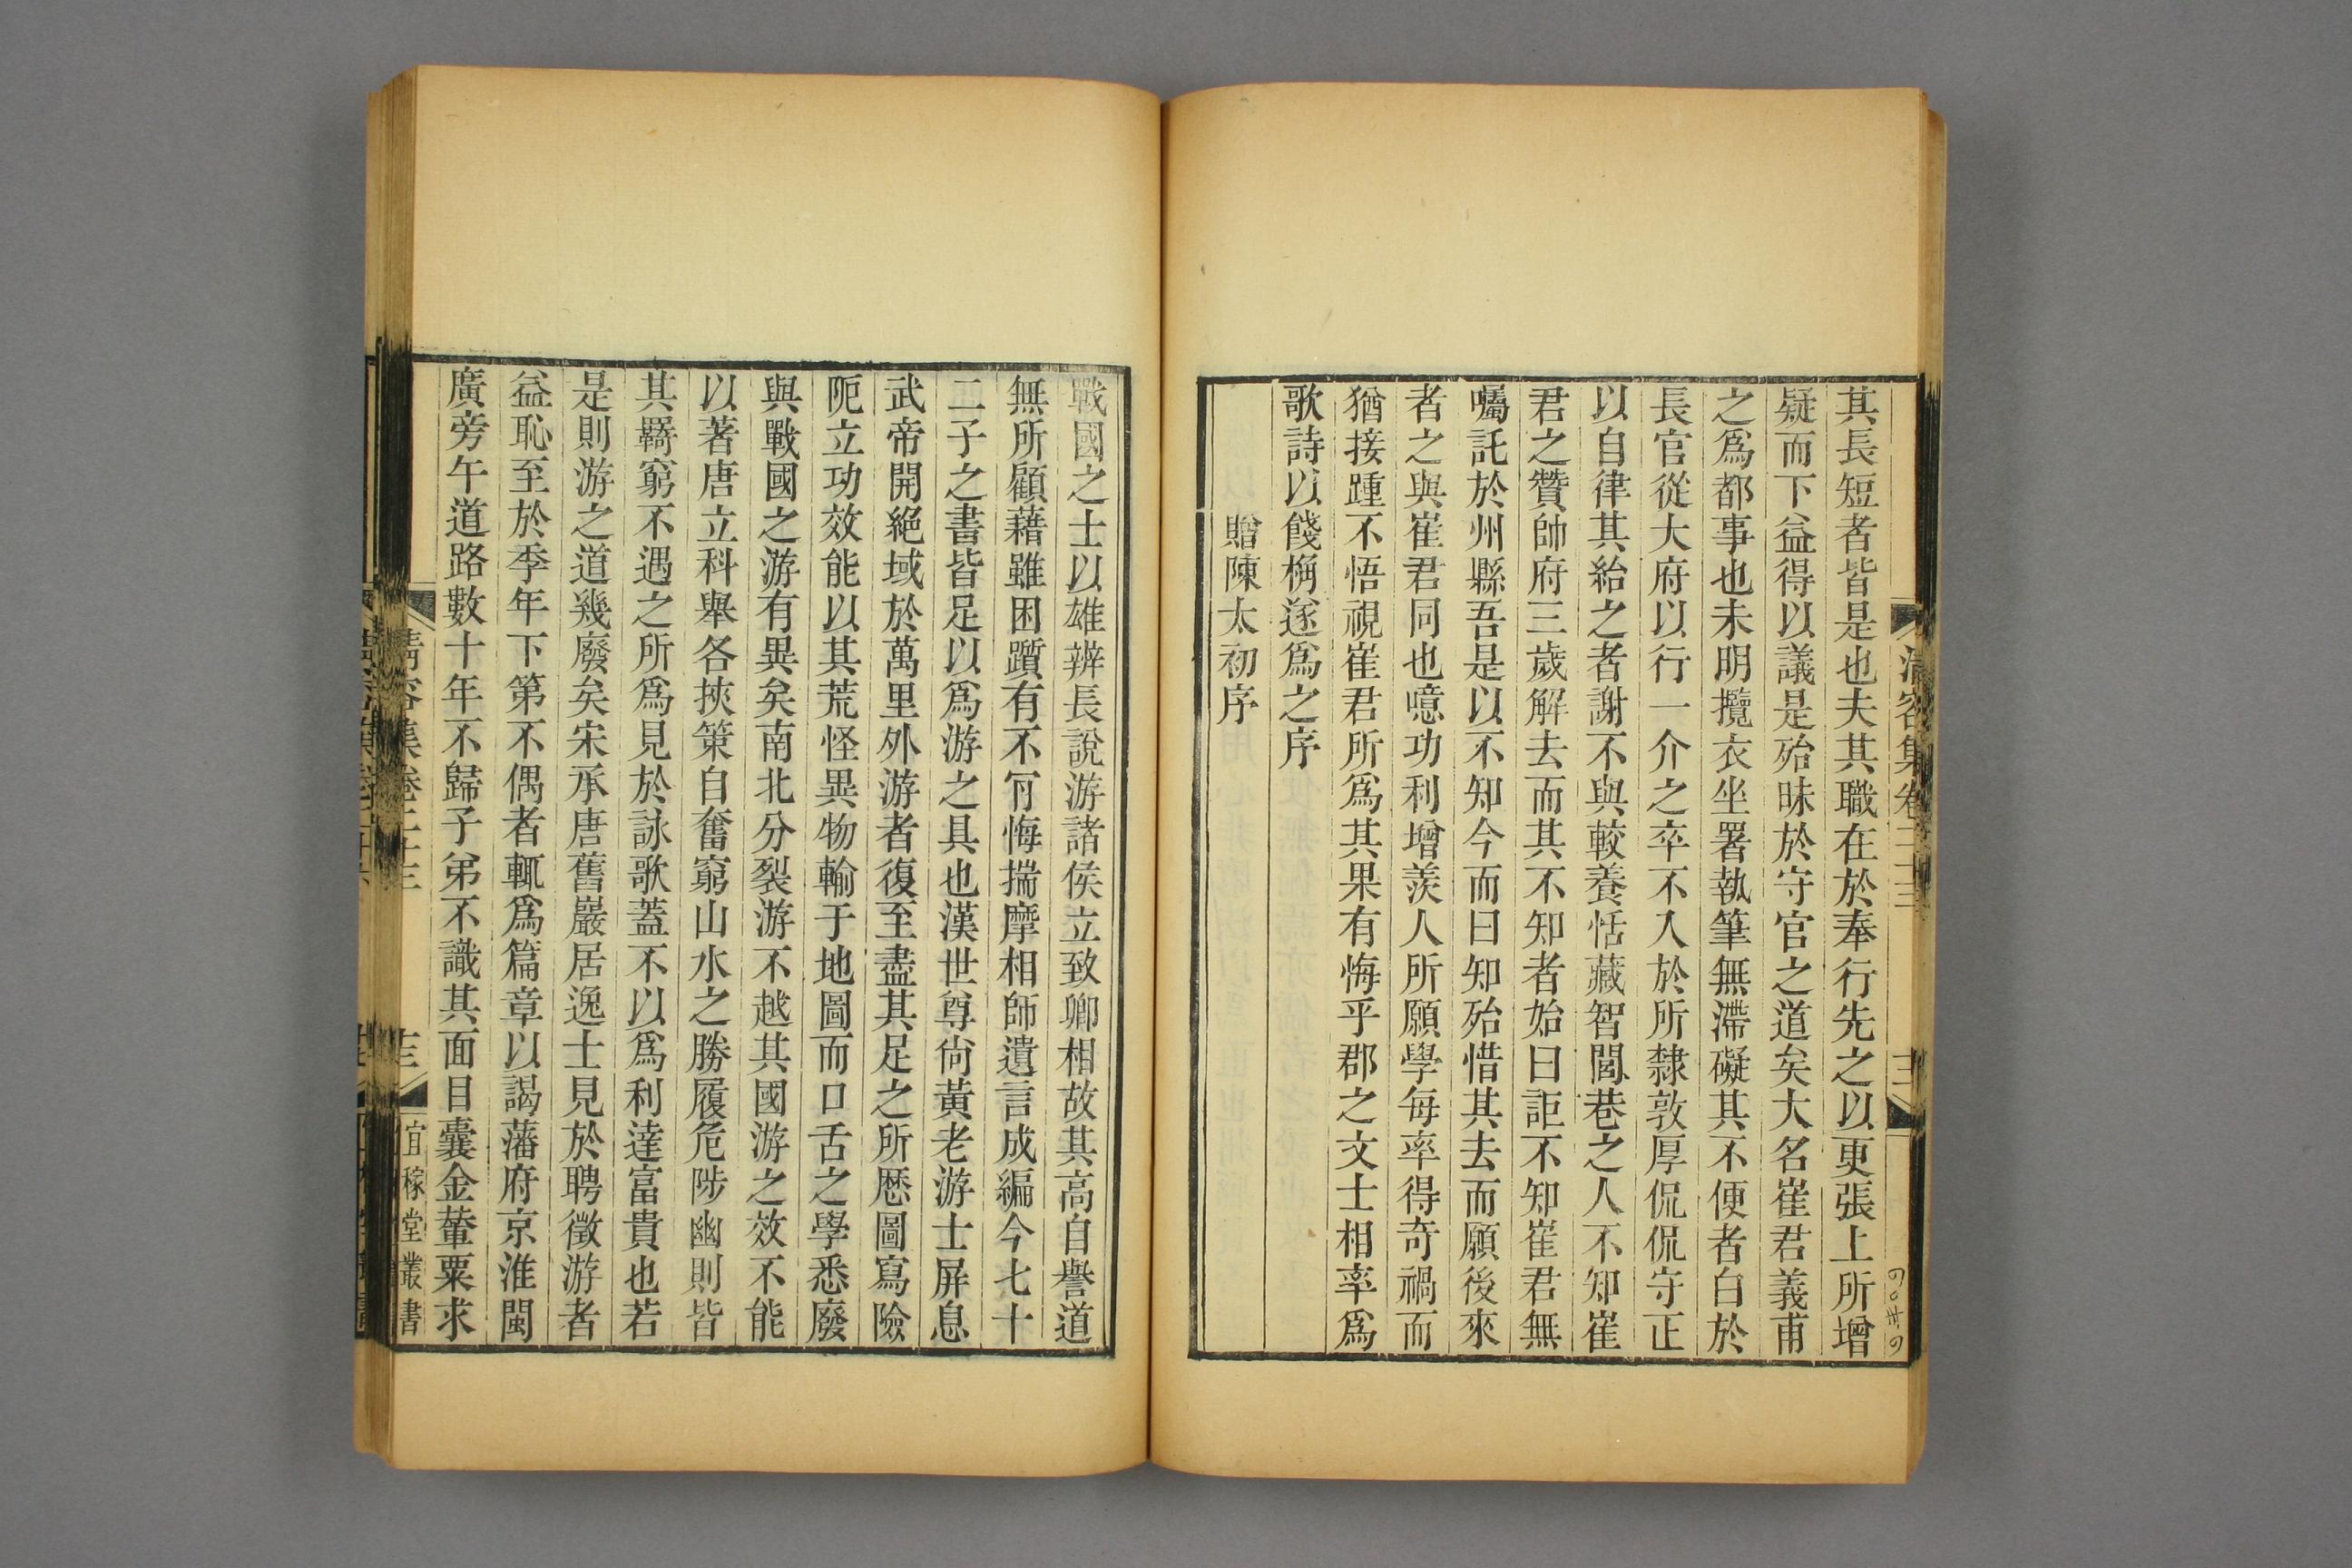 清容集卷二十三
其長短者皆是也夫其職在於奉行先之以更張上所增
疑而下益得以議是殆昧於守官之道矣大名崔君義甫
之爲都事也未明攬衣坐署執筆無滯礙其不便者白於
長官從大府以行一介之卒不入於所隸敦厚侃侃守正
以自律其紿之者謝不與較養恬藏智閭巷之人不知崔
君之贊帥府三歲解去而其不知者始曰詎不知崔君無
囑託於州縣吾是以不知今而曰知殆惜其去而願後來
者之與崔君同也噫功利增羨人所願學每率得奇禍而
猶接踵不悟視崔君所爲其果有悔乎郡之文士相率爲
歌詩以餞桷遂爲之序
贈陳太初序
戰國之士以雄辨長說游諸侯立致卿相故其高自譽道
無所顧藉雖困躓有不肎悔揣摩相師遺言成編今七十
二子之書皆足以爲游之具也漢世尊尙黃老游士屏息
武帝開絕域於萬里外游者復至盡其足之所厯圖寫險
阨立功效能以其荒怪異物輸于地圖而口舌之學悉廢
與戰國之游有異矣南北分裂游不越其國游之效不能
以著唐立科舉各挾策自奮窮山水之勝履危陟幽則皆
其羇窮不遇之所爲見於詠歌蓋不以爲利達富貴也若
是則游之道幾廢矣宋承唐舊巖居逸士見於聘徵游者
益恥至於季年下第不偶者輒爲篇章以謁藩府京淮閩
廣旁午道路數十年不歸子弟不識其面目囊金輦粟求
清容集卷二十三
宜稼堂叢書